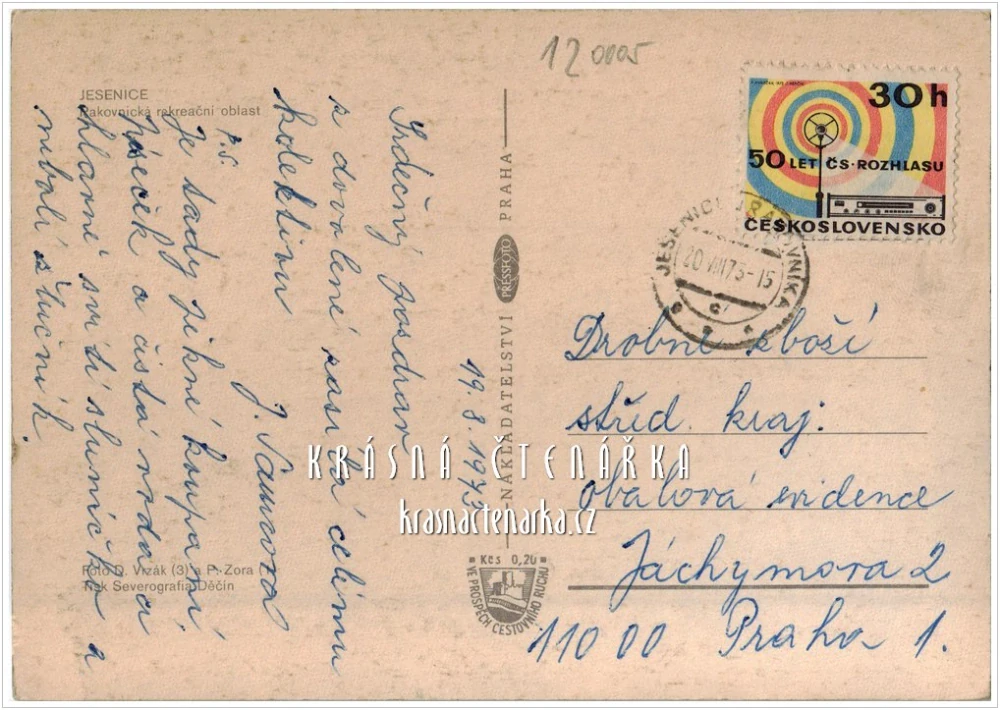 12 0005
JESENICE
Rakovnická rekreační oblast
Srdečný pozdrav
z dovolené posílá celému
kolektivu
J. Saurová
19. 8. 1973
P.S.
Je tady pěkné koupání
píseček a čistá voda a
hlavně svítí sluníčko a
nebolí žlučník.
Foto D. Vrzák (3) a P. Zora
Tisk Severografia Děčín
NAKLADATELSTVÍ PRESSFOTO PRAHA
Kčs 0,20
VE PROSPĚCH CESTOVNÍHO RUCHU
30 h
50 LET ČS. ROZHLASU
ČESKOSLOVENSKO
JESENICE U RAKOVNÍKA
20 VIII 73-15
Drobné zboží
střed. kraj.
obalová evidence
Jáchymova 2
110 00 Praha 1.
KRÁSNÁ ČTENÁŘKA
krasnactenarka.cz